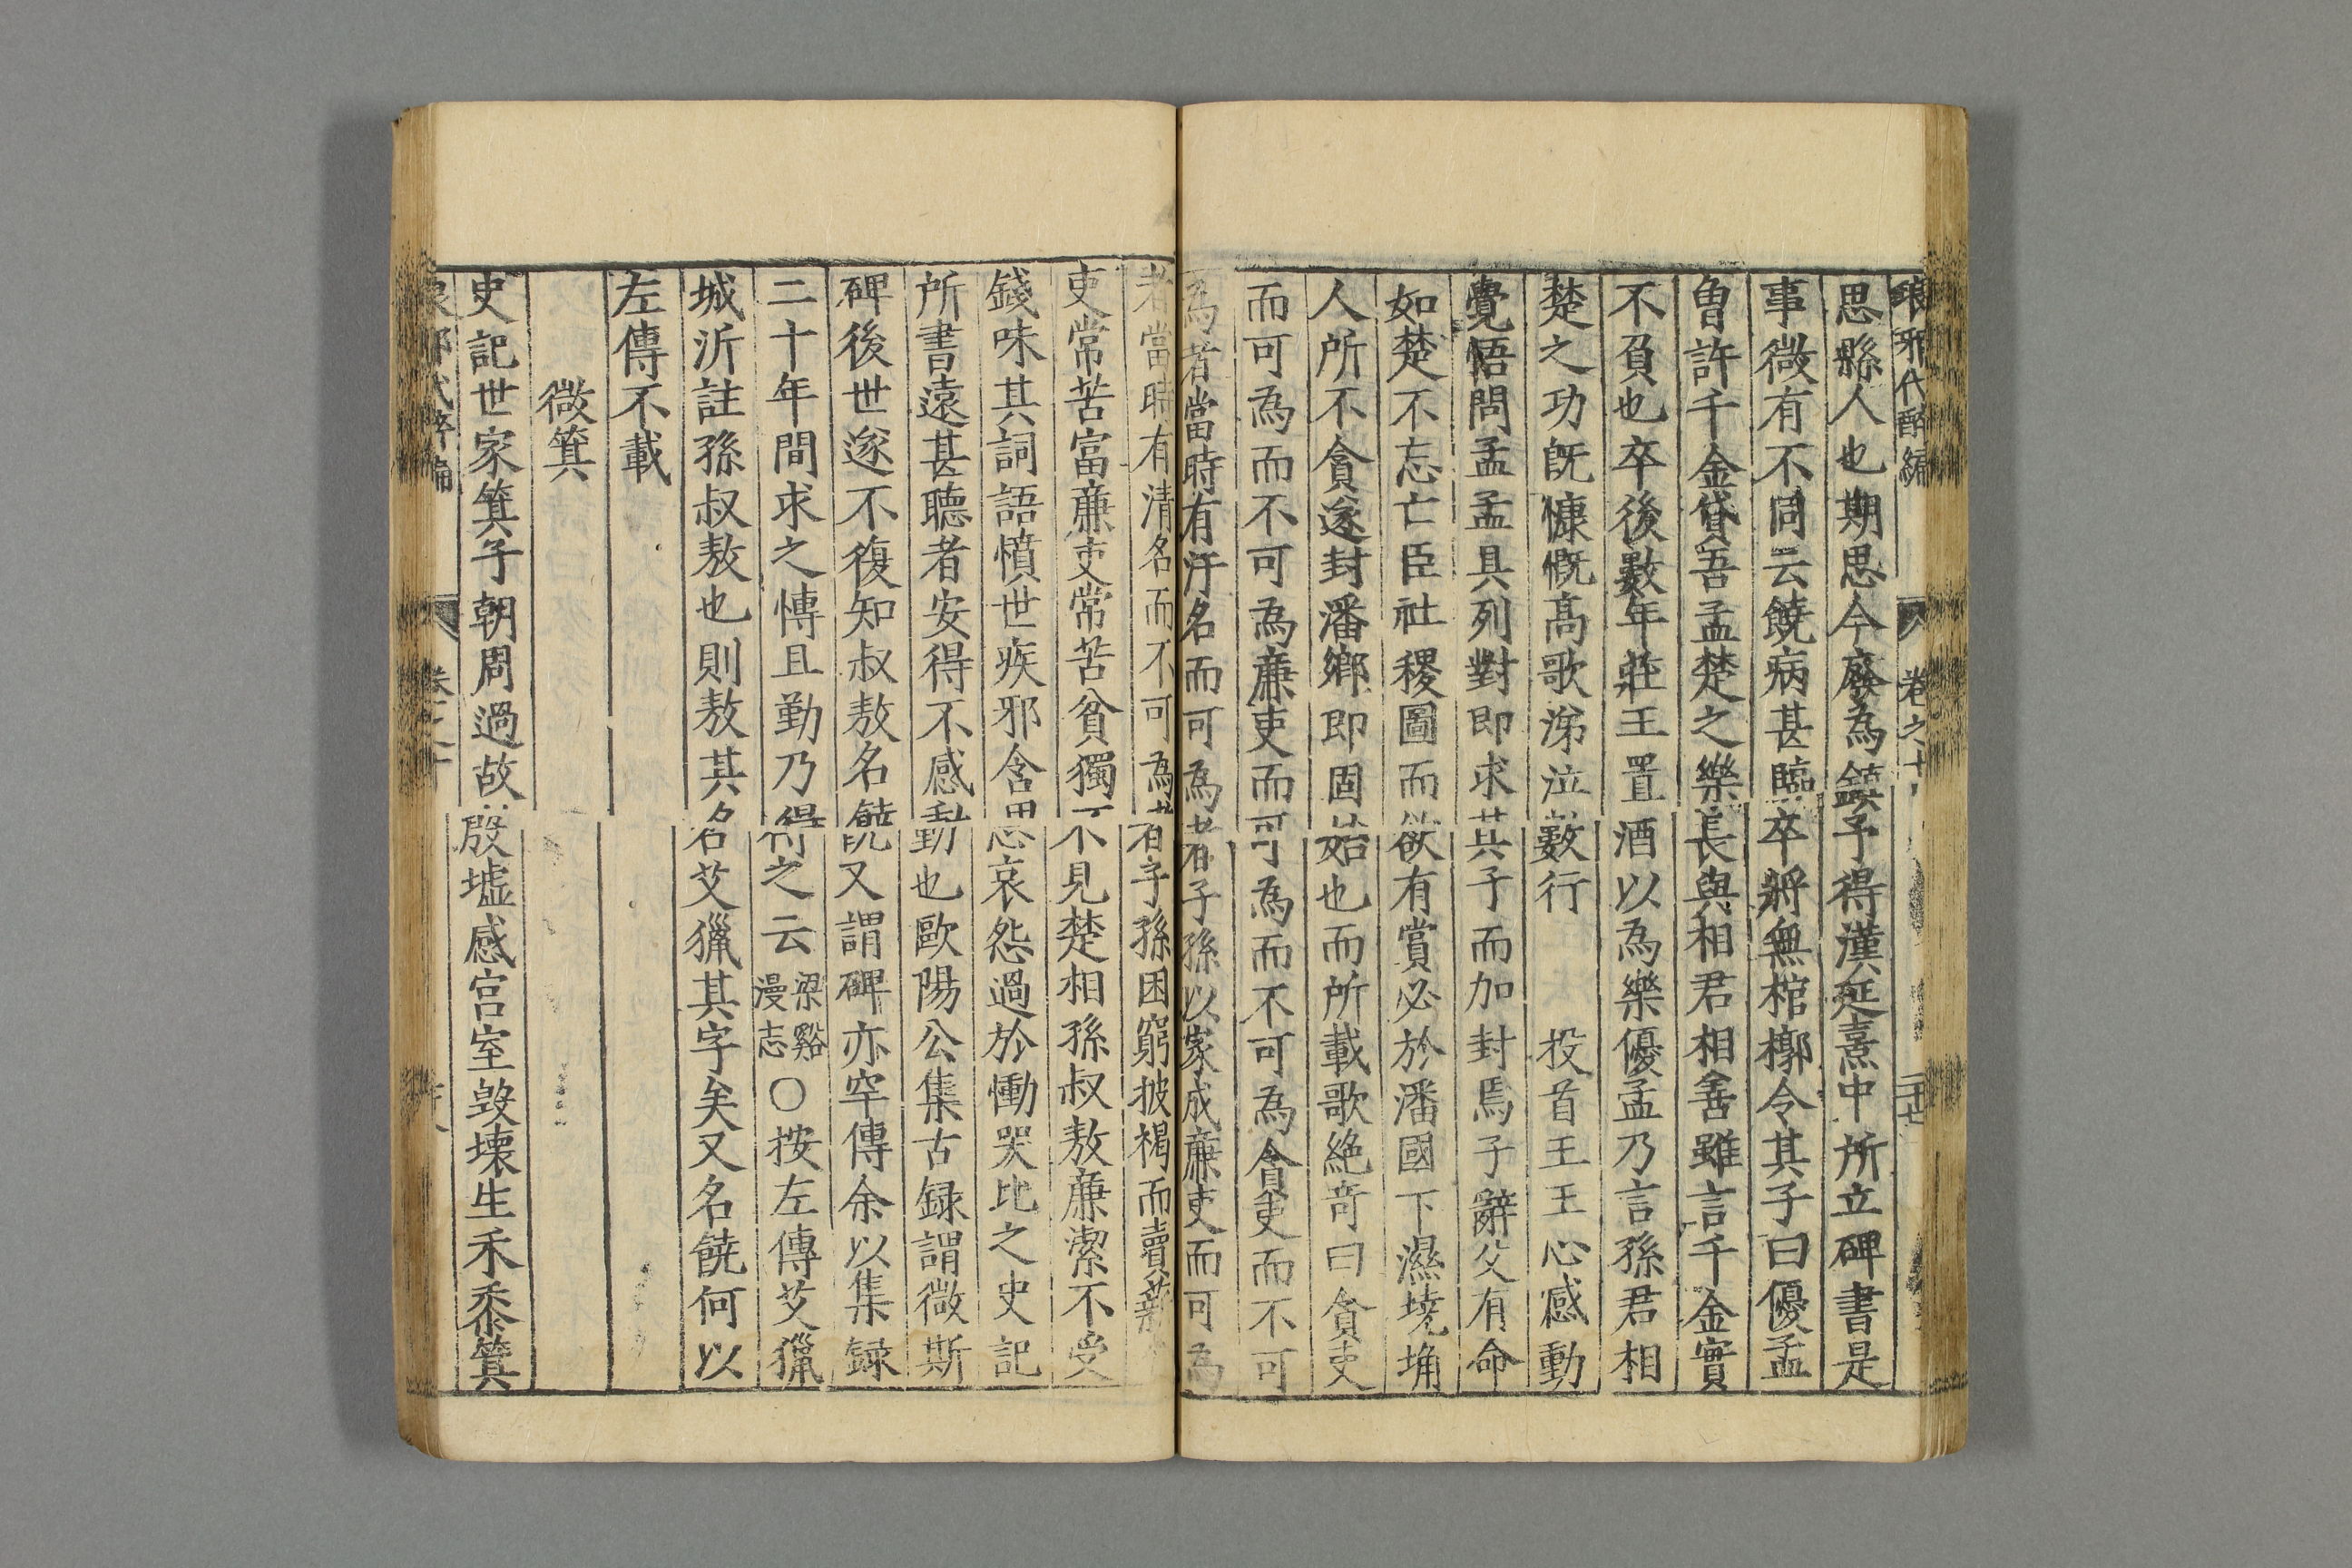 琅邪代醉編 卷之十 二十七
思縣人也期思今廢為鎮予得漢延熹中所立碑書是
事微有不同云饒病甚臨卒將無棺槨令其子曰優孟
曾許千金貸吾孟楚之樂長與相君相善雖言千金實
不負也卒後數年莊王置酒以為樂優孟乃言孫君相
楚之功既慷慨高歌涕泣數行 投首王王心感動
覺悟問孟孟具列對即求其子而加封焉子辭父有命
如楚不忘亡臣社稷圖而欲有賞必於潘國下濕墝埆
人所不貪遂封潘鄉即固始也而所載歌絕奇曰貪吏
而可為而不可為廉吏而可為而不可為貪吏而不可
為者當時有汙名而可為者子孫以家成廉吏而可為
者當時有清名而不可為者子孫困窮披褐而賣薪
吏常苦富廉吏常苦貧獨不見楚相孫叔敖廉潔不受
錢味其詞語憤世疾邪含思哀怨過於慟哭比之史記
所書遠甚聽者安得不感動也歐陽公集古録謂微斯
碑後世遂不復知叔敖名饒又謂碑亦罕傳余以集録
二十年間求之慱且勤乃得之云梁谿漫志○按左傳艾獵
城沂註孫叔敖也則敖其名艾獵其字矣又名饒何以
左傳不載
微箕
史記世家箕子朝周過故殷墟感宮室毀壞生禾黍箕